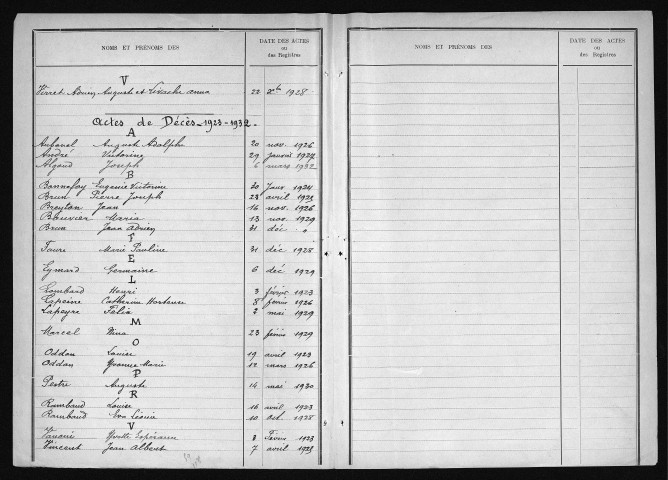 NOMS ET PRÉNOMS DES
DATE DES ACTES
ou
des Registres
V
Verret Auguste et anna 22 Xbre 1928
Actes de Décès - 1923 - 1932 -
A
Aubanel August Adolphe 20 nov. 1926
André Victorine 29 janvier 1927
Algoud Joseph 6 mars 1932
B
Bonnefoy Eugenie Victorine 20 Janv 1924
Brun Pierre Joseph 23 avril 1925
Breyton Jean 16 nov. 1926
Bouvier Maria 13 nov. 1929
Brun Jean Adrien 31 déc "
F
Faure Marie Pauline 31 déc 1928
E
Eymard Germaine 6 déc 1929
L
Lombard Henri 3 février 1923
Lepeine Catherine Hortense 8 février 1926
Lapeyre Félix 2 mai 1929
M
Marcel Nina 23 février 1929
O
Oddon Louise 19 avril 1923
Oddon Yvonne Marie 12 mars 1926
P
Pestre Auguste 14 mai 1930
R
Rambaud Louise 16 avril 1923
Rambaud Eva Léonie 10 Oct. 1928
V
Yvette Espérance 8 Févrie 1923
Vincent Jean Albert 7 avril 1925
NOMS ET PRÉNOMS DES
DATE DES ACTES
ou
des Registres